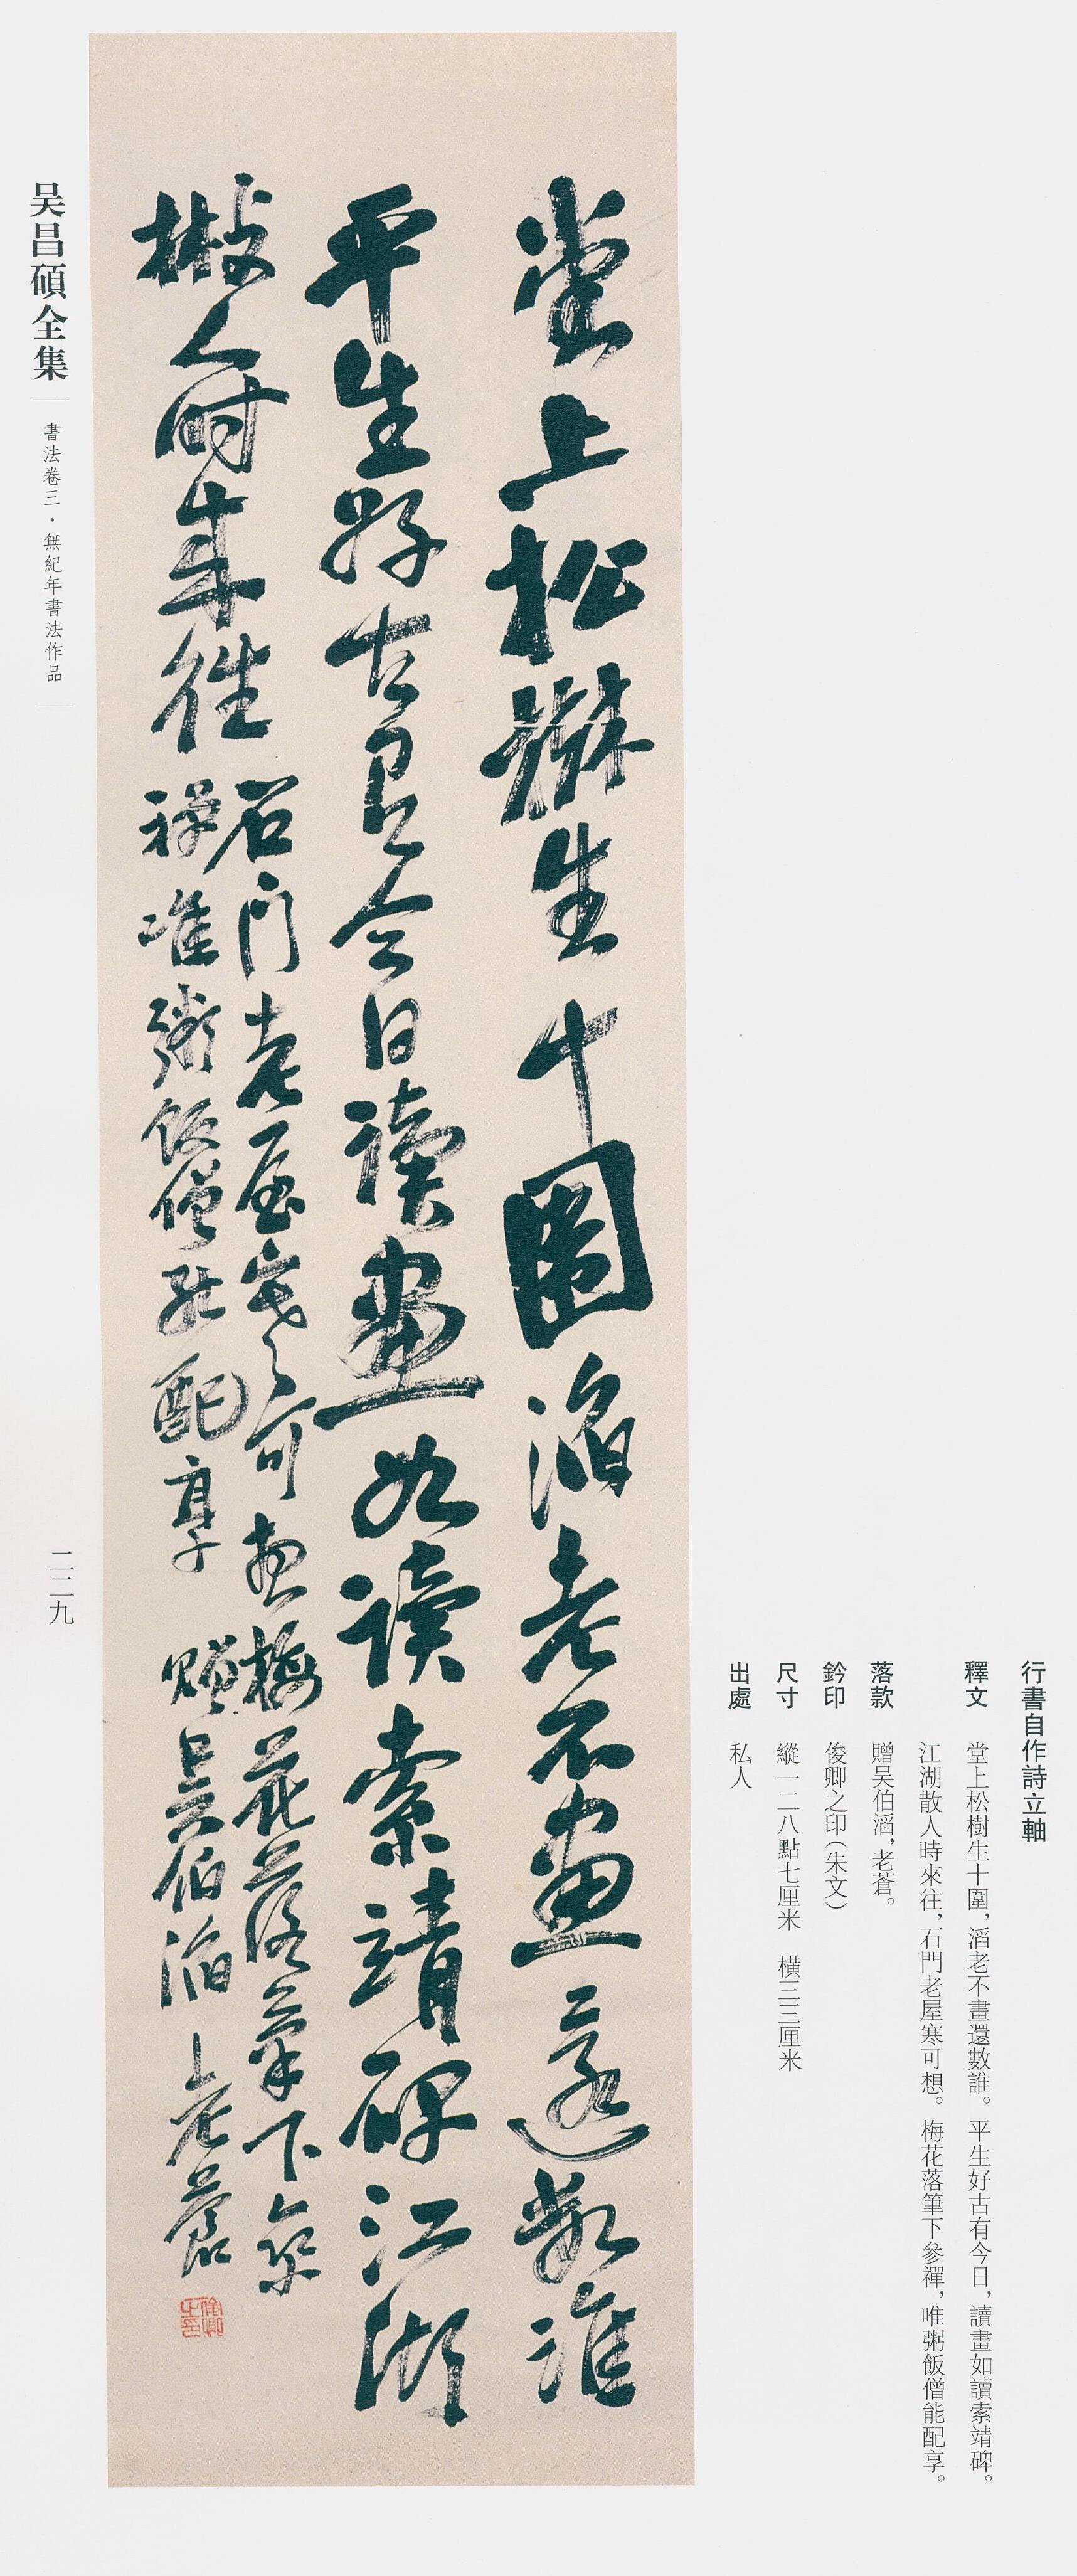 行書自作詩立軸
釋文 堂上松樹生十圍，滔老不畫還數誰。平生好古有今日，讀畫如讀索靖碑。
江湖散人時來往，石門老屋寒可想。梅花落筆下參禪，唯粥飯僧能配享。
落款 贈吴伯滔，老蒼。
鈐印 俊卿之印（朱文）
尺寸 縱一二八點七厘米 橫三三厘米
出處 私人
堂上松樹生十圍滔老不畫還數誰
平生好古有今日讀畫如讀索靖碑江湖
散人時來往
石門老屋寒可想梅花落筆下參
禪唯粥飯僧能配享 贈吳伯滔 老蒼
俊卿之印
吴昌碩全集
書法卷三·無紀年書法作品
二二九